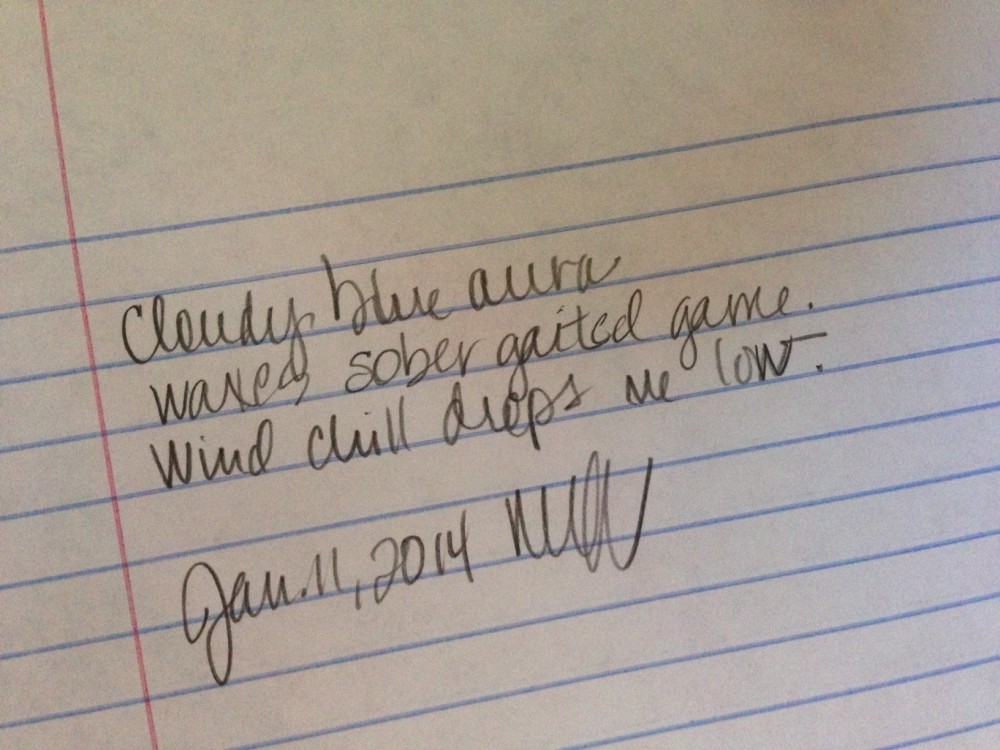 Cloudy blue aura
waxed, sober gaited game.
Wind chill drops me low.
Jan. 11, 2014